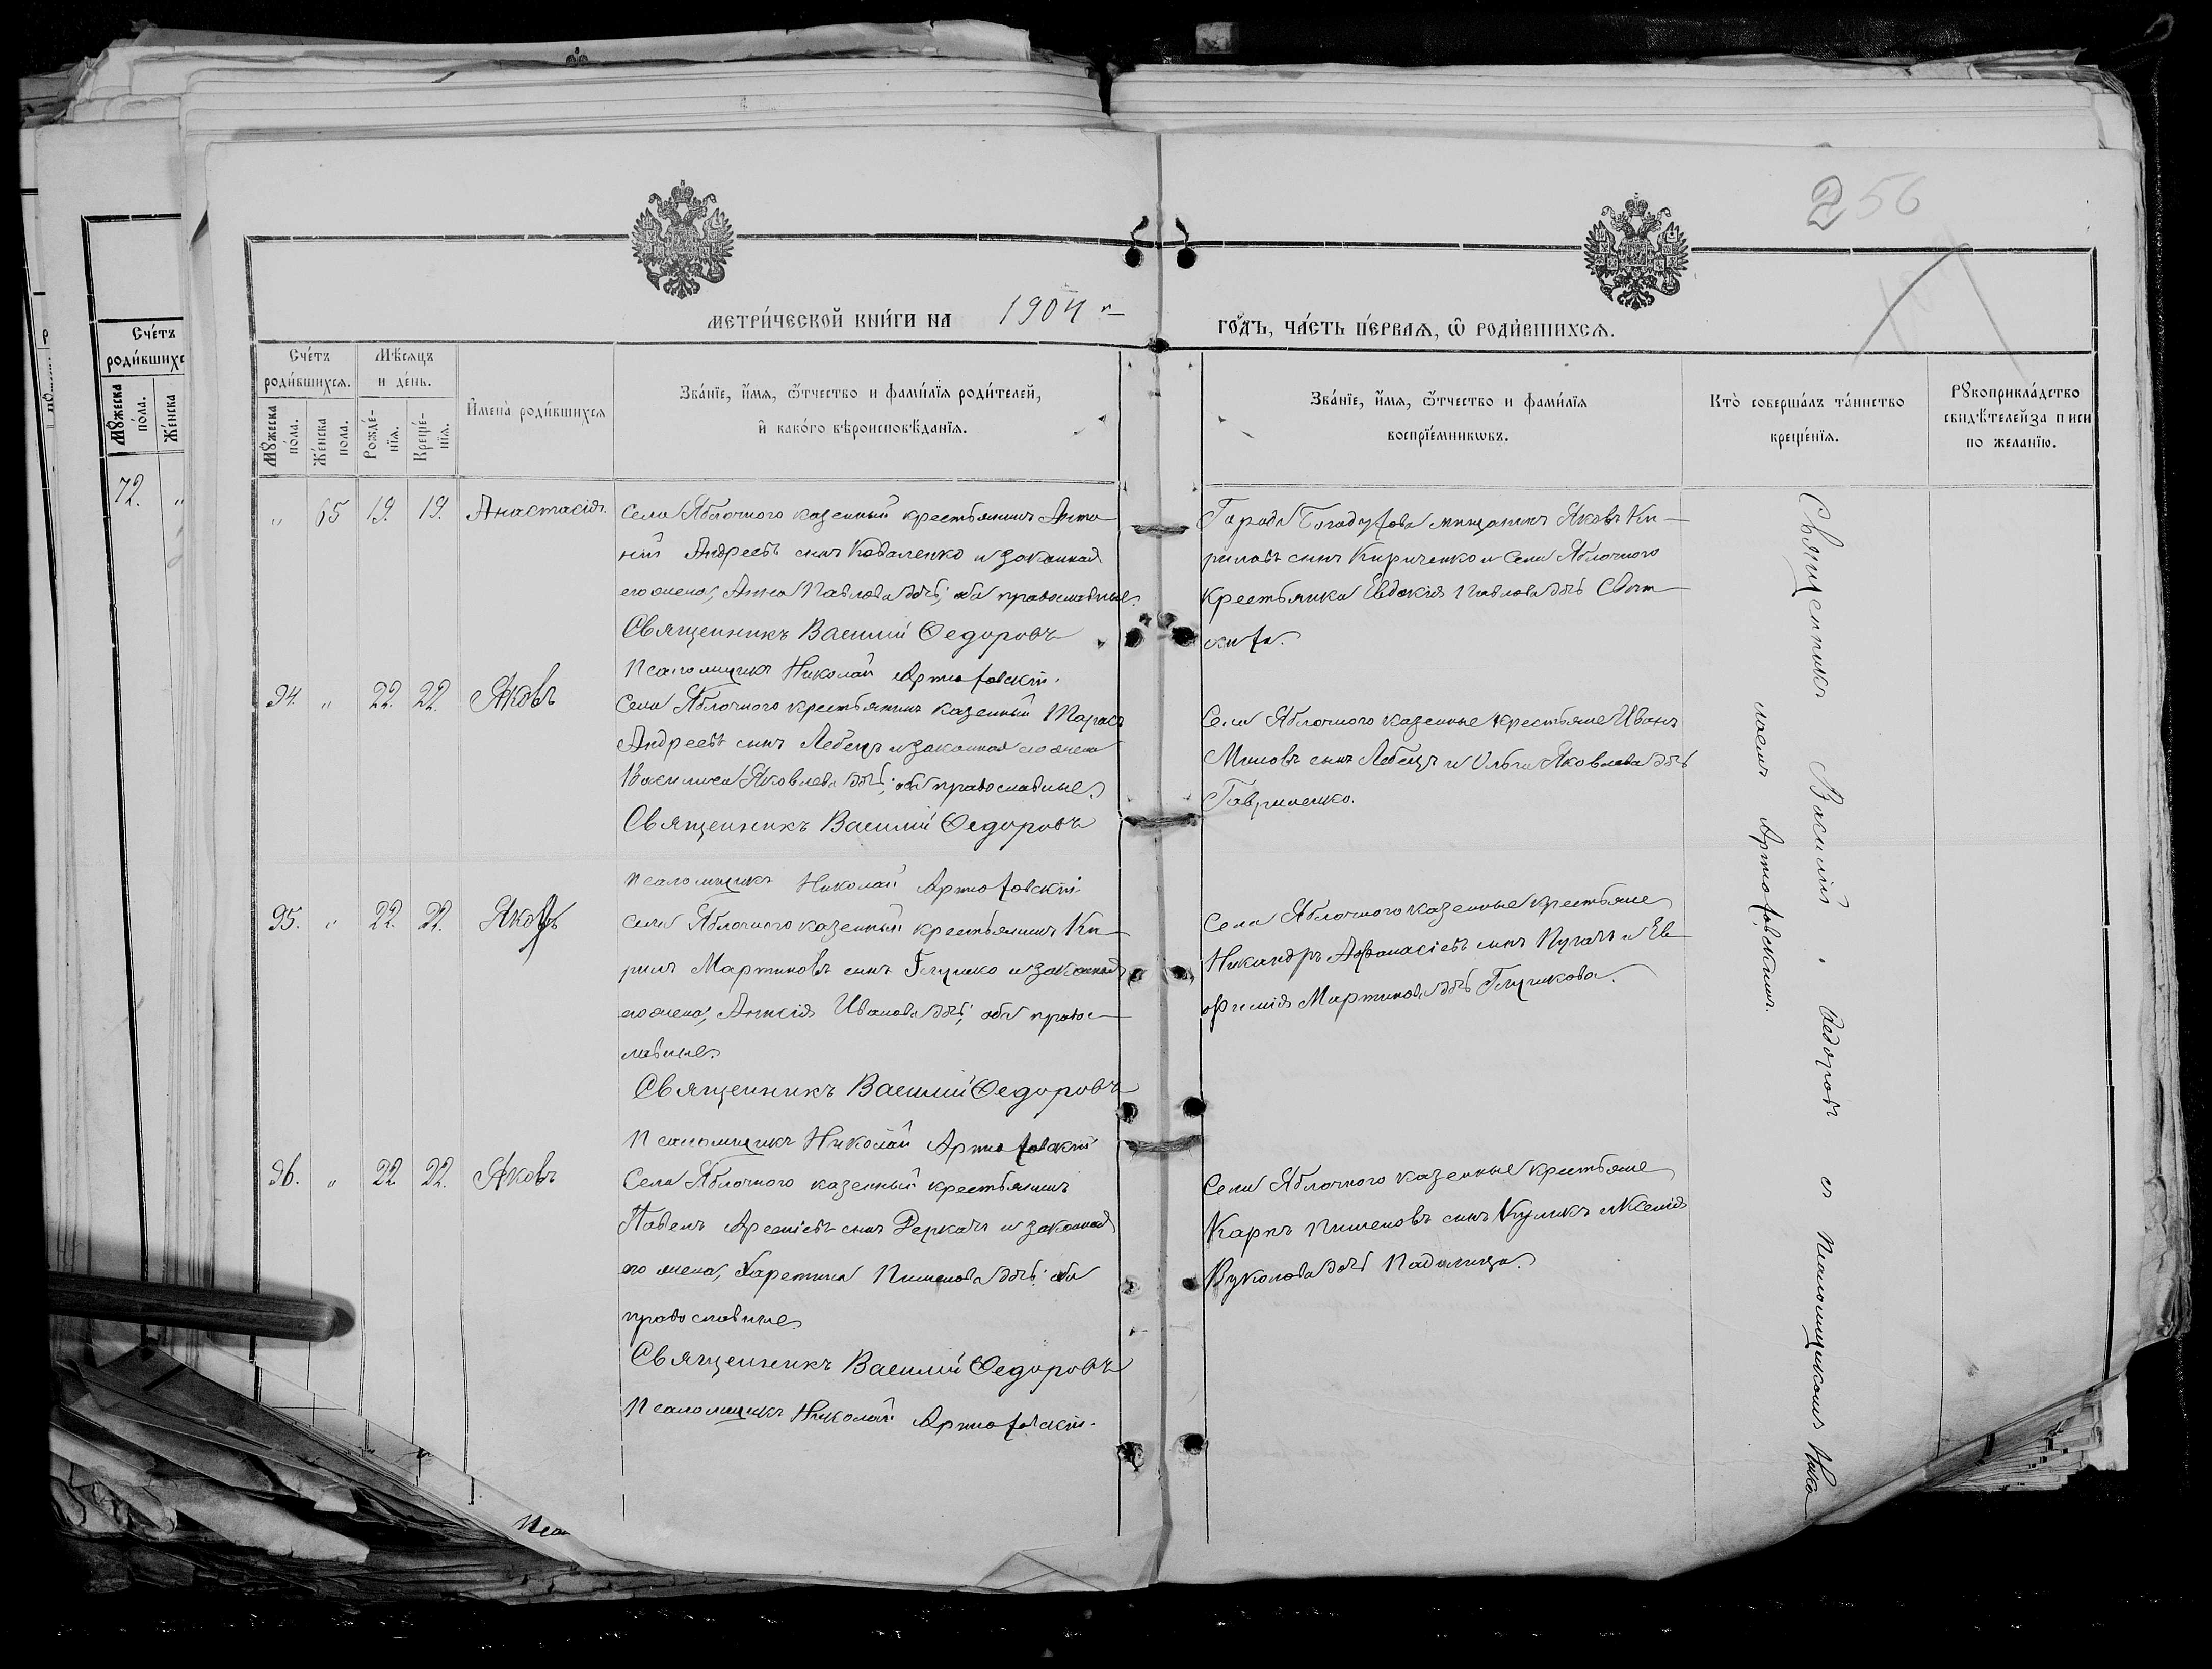 256
МЕТРИ́ЧЕСКОЙ КНИ́ГИ НА 1904 й
ГО́ДЪ, ЧА́СТЬ ПЕ́РВАѦ, Ѿ РОДИ́ВШИХСѦ.
Сче́тъ
роди́вшихс
Мꙋжеска
по́ла.
Же́нска
72. "
Сче́тъ
роди́вшихсѧ.
Мꙋжеска
по́ла.
Же́нска
пола.
Мѣ́сѧцъ
и де́нь.
Рожде́-
нїѧ.
Креще́-
нїѧ.
И҆мена̀ роди́вшихсѧ
Зва́нїе, и҆́мѧ, ѻ҆́тчество и фами́лїѧ роди́телей,
и҆ како́го вѣроисповѣ́данїѧ.
Зва́нїе, и҆́мѧ, ѻ҆́тчество и фами́лїѧ
воспрїе́мникѡвъ.
Кто̀ соверша́лъ та́инство
креще́нїѧ.
Рꙋкоприкла́дство
свидѣ́телей за писи
по жела́нїю.
" 65 19. 19. Анастасія.
Села Яблочного казенный крестьянинъ Анто-
ній Андреевъ сынъ Коваленко и законная
его жена, Анна Павлова дчь; оба православные.
Священникъ Василий Федоровъ
Псаломщикъ Николай Артюховскій.
Города Богодухова мещанинъ Яковъ Ки-
риловъ сынъ Кириченко и Села Яблочного
крестьянка Евдокія Павлова дчь
94. " 22. 22. Яковъ
Села Яблочного крестьянинъ казенный Тарасъ
Андреевъ сынъ Лебецъ и законная его жена
Василиса Яковлева дчь; оба православные.
Священникъ Василий Федоровъ
Псаломщикъ Николай Артюховскій
Села Яблочного казенные крестьяне Иванъ
сынъ Лебецъ и Ольга Яковлева дчь
Гавриленко.
95. " 22. 22. Яковъ
Села Яблочного казенный крестьянинъ Ки-
рилъ Мартиновъ сынъ Глушко и законная
его жена, Ивановна дчь; оба право-
славные.
Священникъ Василий Федоровъ
Псаломщикъ Николай Артюховскій
Села Яблочного казенные крестьяне
Никандръ Афанасіевъ сынъ Пугачъ и Ев-
фимія Мартинова дчь Глушкова.
96. " 22 22. Яковъ
Села Яблочного казенный крестьянинъ
Павелъ сынъ Деркачъ и законная
его жена, Харитина Пименова дчь; оба
православные
Священникъ Василий Федоровъ
Псаломщикъ Николай Артюховскій.
Села Яблочного казенные крестьяне
Карпъ Пименовъ сынъ Куликъ и Ксенія
Вуколова дчь Падалица.
Священникъ Василій Федоровъ съ Псаломщикомъ Нико-
лаемъ Артюховскимъ.
Пса